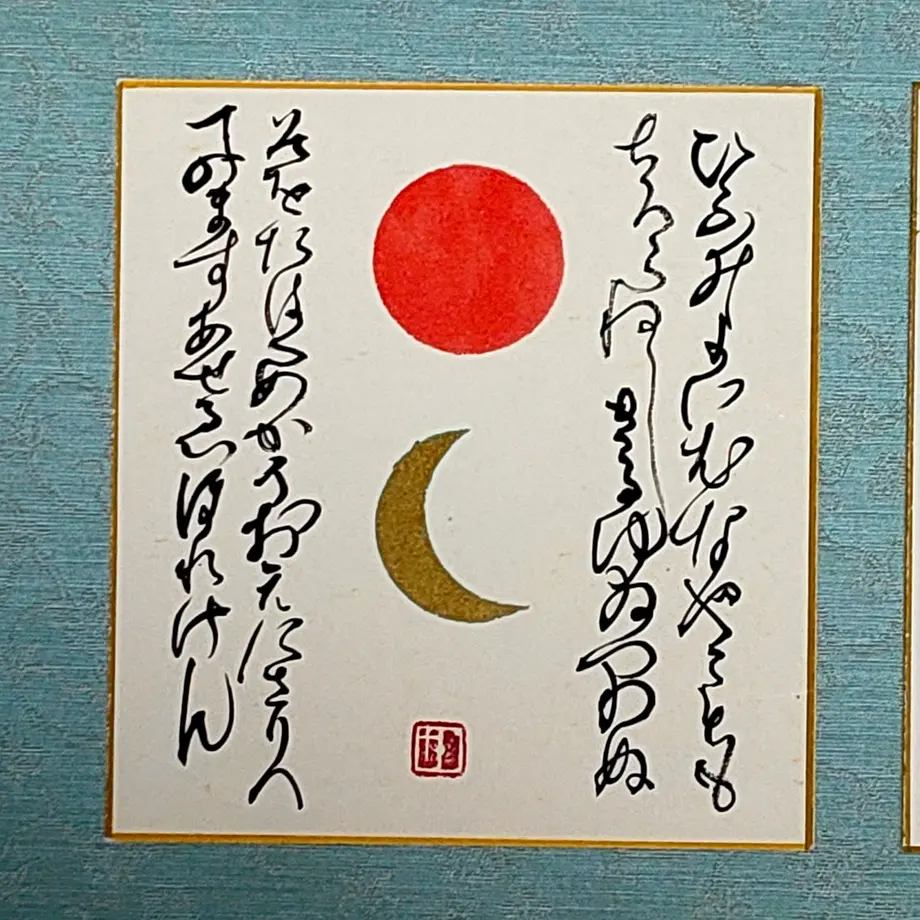 ひふみよいむなやことも
ちろらねしきるゆゐつわぬ
そをたはくめかうおえにさりへ
てのますあせゑほれけん